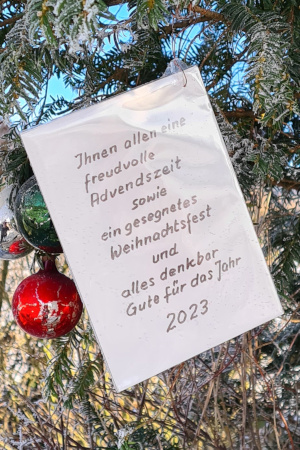 Ihnen allen eine
freudvolle
Advendszeit
sowie
ein gesegnetes
Weihnachtsfest
und
alles denkbar
Gute für das Jahr
2023